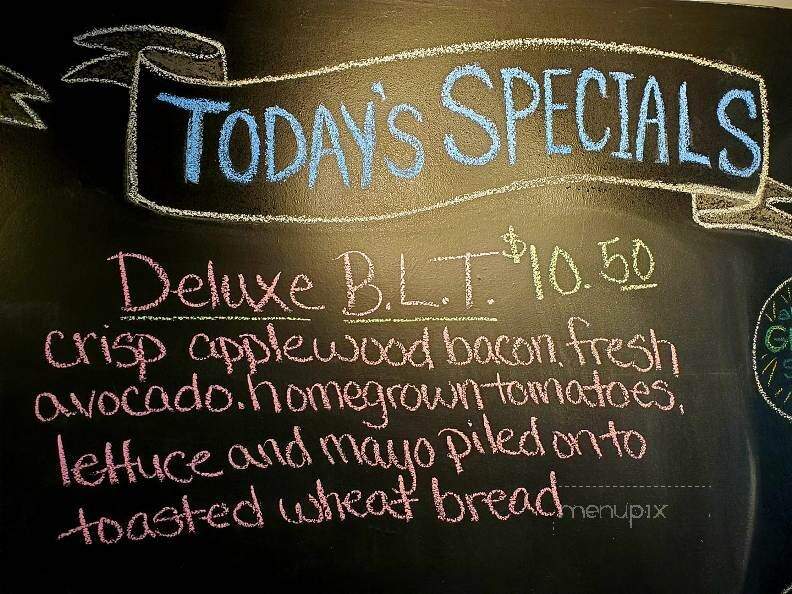 TODAY'S SPECIALS
Deluxe B.L.T. $10.50
crisp applewood bacon, fresh
avocado, homegrown tomatoes,
lettuce and mayo piled onto
toasted wheat bread
menupix